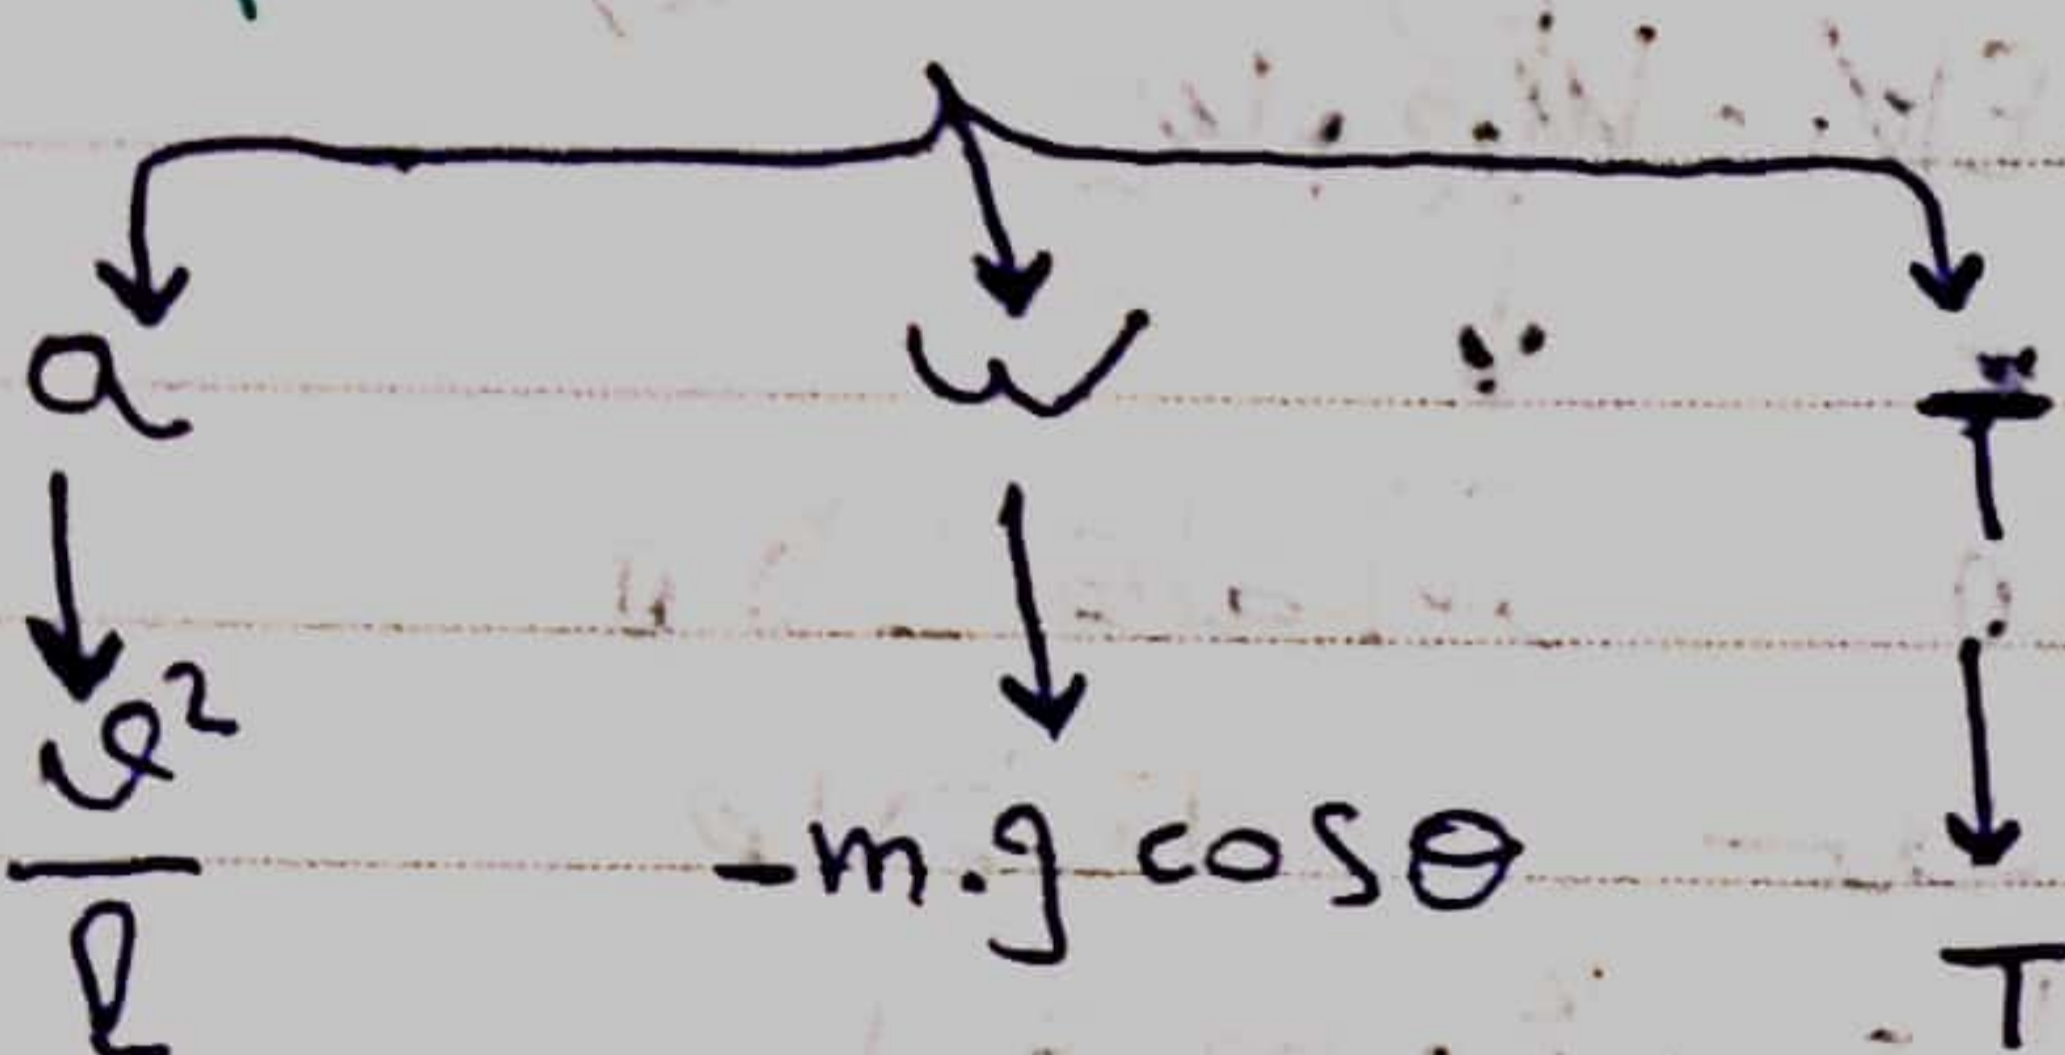 a w T
v²
-m.g cosθ
l T